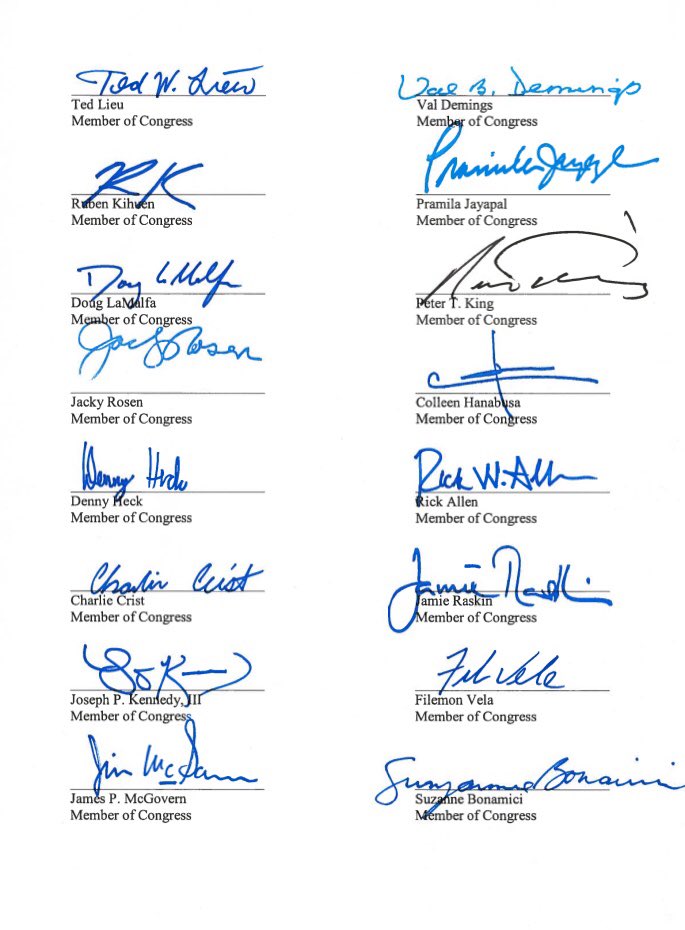 Ted W. Lieu
Ted Lieu
Member of Congress
Val B. Demings
Val Demings
Member of Congress
RK
Ruben Kihuen
Member of Congress
Pramila Jayapal
Pramila Jayapal
Member of Congress
Doug LaMalfa
Doug LaMalfa
Member of Congress
Peter T. King
Member of Congress
Jacky Rosen
Jacky Rosen
Member of Congress
Colleen Hanabusa
Member of Congress
Denny Heck
Denny Heck
Member of Congress
Rick W. Allen
Rick Allen
Member of Congress
Charlie Crist
Charlie Crist
Member of Congress
Jamie Raskin
Jamie Raskin
Member of Congress
Joseph P. Kennedy, III
Member of Congress
Fil Vela
Filemon Vela
Member of Congress
Jim McGovern
James P. McGovern
Member of Congress
Suzanne Bonamici
Suzanne Bonamici
Member of Congress